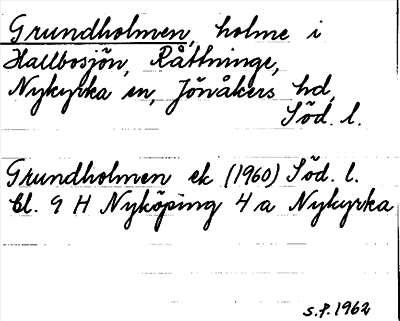 Grundholmen, holme i
Hallbosjön, Råttninge,
Nykyrka sn, Jönåkers hd,
Söd. l.
Grundholmen ek (1960) Söd. l.
Bl. 9 H Nyköping 4 a Nykyrka
S.P. 1962